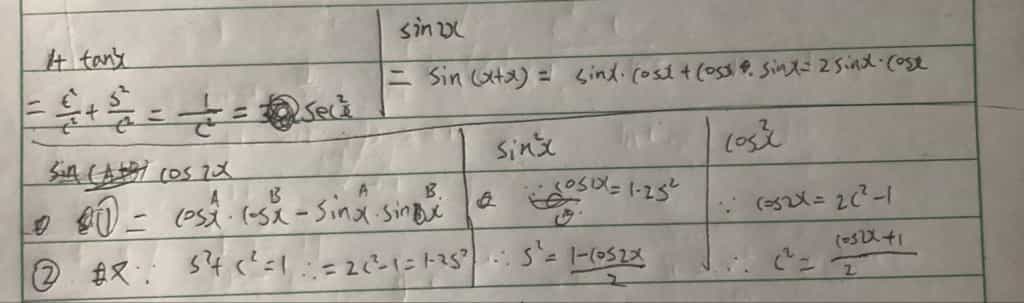 1+ tan²x
= c²/c² + s²/c² = 1/c² = sec²x
sin2x
= sin (x+x) = sinx·cosx + cosx·sinx = 2sinx·cosx
cos2x
① = cosx·cosx - sinx·sinx
A B A B
② 又∵ s²+c²=1 ∴ = 2c²-1 = 1-2s²
sin²x
∵ cos2x = 1-2s²
∴ s² = 1-cos2x / 2
cos²x
∵ cos2x = 2c²-1
∴ c² = cos2x+1 / 2